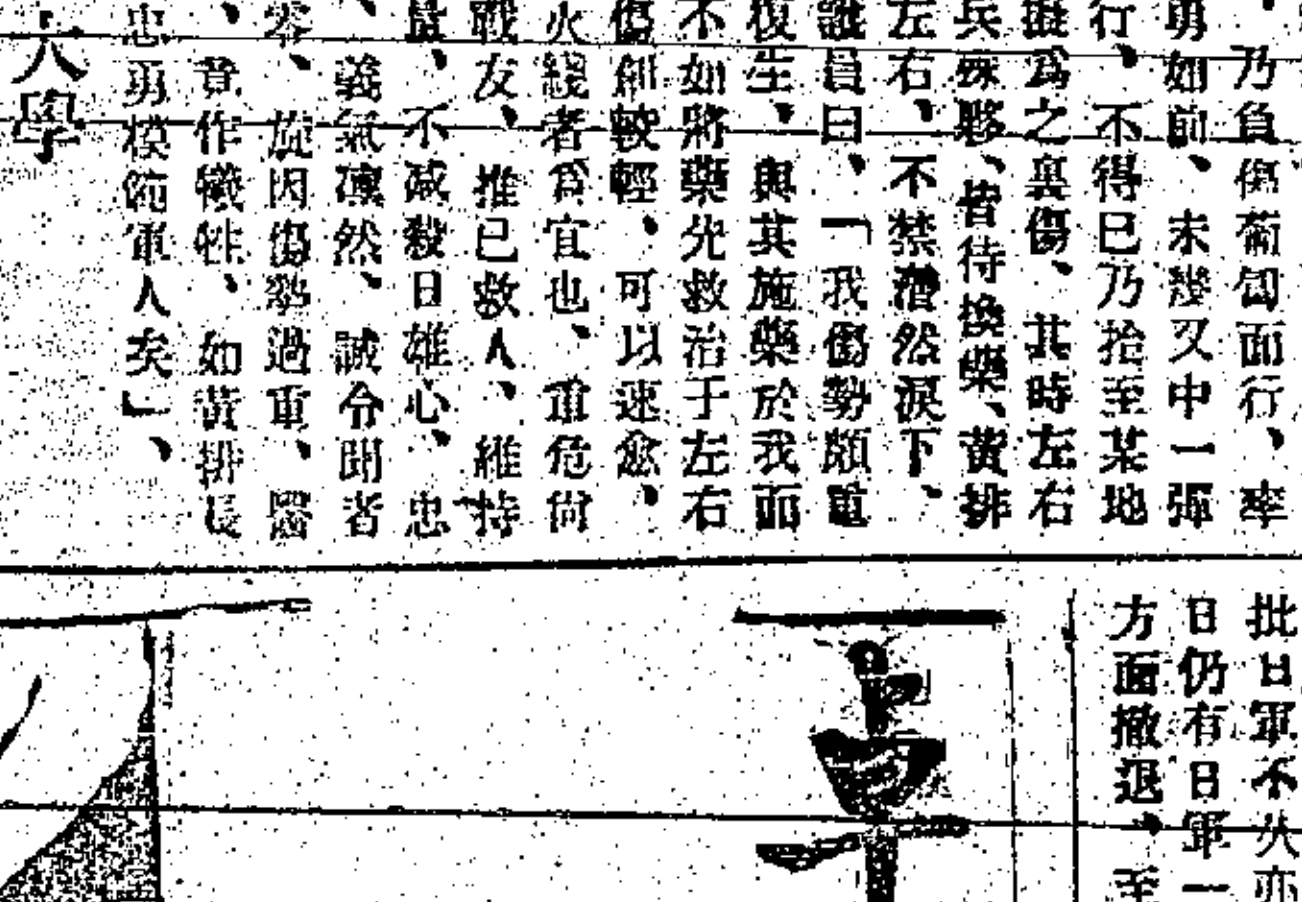 、乃負傷匍匐面行、率
勇如前、未幾又中一彈
行、不得已乃拾至某地
擬爲之裏傷、其時左右
兵疎夥、皆待換藥、黄排
左右、不禁潸然淚下、
議員曰、「我傷勢頗重
復生、與其施藥於我而
不如將藥先救治于左右
傷創較輕、可以速愈、
火綫者爲宜也、重危尙
戰友、推己救人、維持
量、不减殺日雄心、忠
、義氣凛然、誠令聞者
零、旋因傷勢過重、醫
、竟作犧牲、如黃排長
忠勇模範軍人矣」、
大學
批日軍不久亦
日仍有日軍一
方面撤退、至